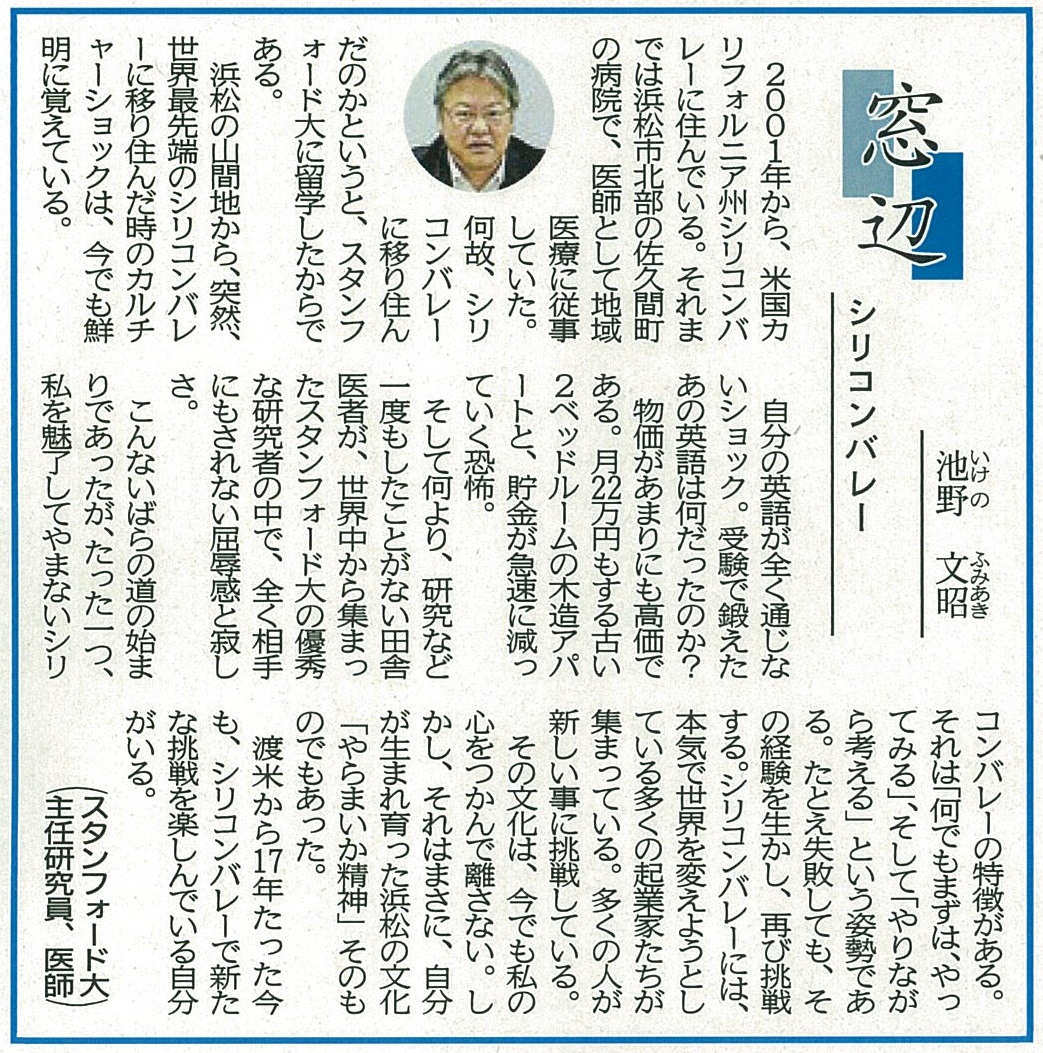 窓辺
シリコンバレー
池野 文昭
いけの ふみあき
２００１年から、米国カ
リフォルニア州シリコンバ
レーに住んでいる。それま
では浜松市北部の佐久間町
の病院で、医師として地域
医療に従事
していた。
何故、シリ
コンバレー
に移り住ん
だのかというと、スタンフ
ォード大に留学したからで
ある。
浜松の山間地から、突然、
世界最先端のシリコンバレ
ーに移り住んだ時のカルチ
ャーショックは、今でも鮮
明に覚えている。
自分の英語が全く通じな
いショック。受験で鍛えた
あの英語は何だったのか？
物価があまりにも高価で
ある。月22万円もする古い
２ベッドルームの木造アパ
ートと、貯金が急速に減っ
ていく恐怖。
そして何より、研究など
一度もしたことがない田舎
医者が、世界中から集まっ
たスタンフォード大の優秀
な研究者の中で、全く相手
にもされない屈辱感と寂し
さ。
こんないばらの道の始ま
りであったが、たった一つ、
私を魅了してやまないシリ
コンバレーの特徴がある。
それは「何でもまずは、やっ
てみる」、そして「やりなが
ら考える」という姿勢であ
る。たとえ失敗しても、そ
の経験を生かし、再び挑戦
する。シリコンバレーには、
本気で世界を変えようとし
ている多くの起業家たちが
集まっている。多くの人が
新しい事に挑戦している。
その文化は、今でも私の
心をつかんで離さない。し
かし、それはまさに、自分
が生まれ育った浜松の文化
「やらまいか精神」そのも
のでもあった。
渡米から17年たった今
も、シリコンバレーで新た
な挑戦を楽しんでいる自分
がいる。
（スタンフォード大
主任研究員、医師）